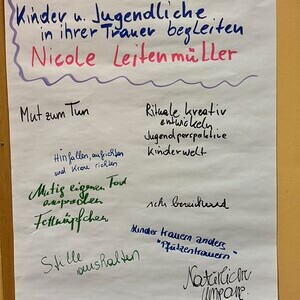 Kinder u. Jugendliche
in ihrer Trauer begleiten
Nicole Leitenmüller
Mut zum Tun
Rituale kreativ
entwickeln
Jugendperspektive
Kinderwelt
Hinfallen, aufrichten
und Krone richten
Mutig eigenen Tod
ansprechen
Fettnäpfchen
sehr bereichernd
Kinder trauern anders
"Pfützentrauern"
Stille
aushalten
Natürlicher
Umgang